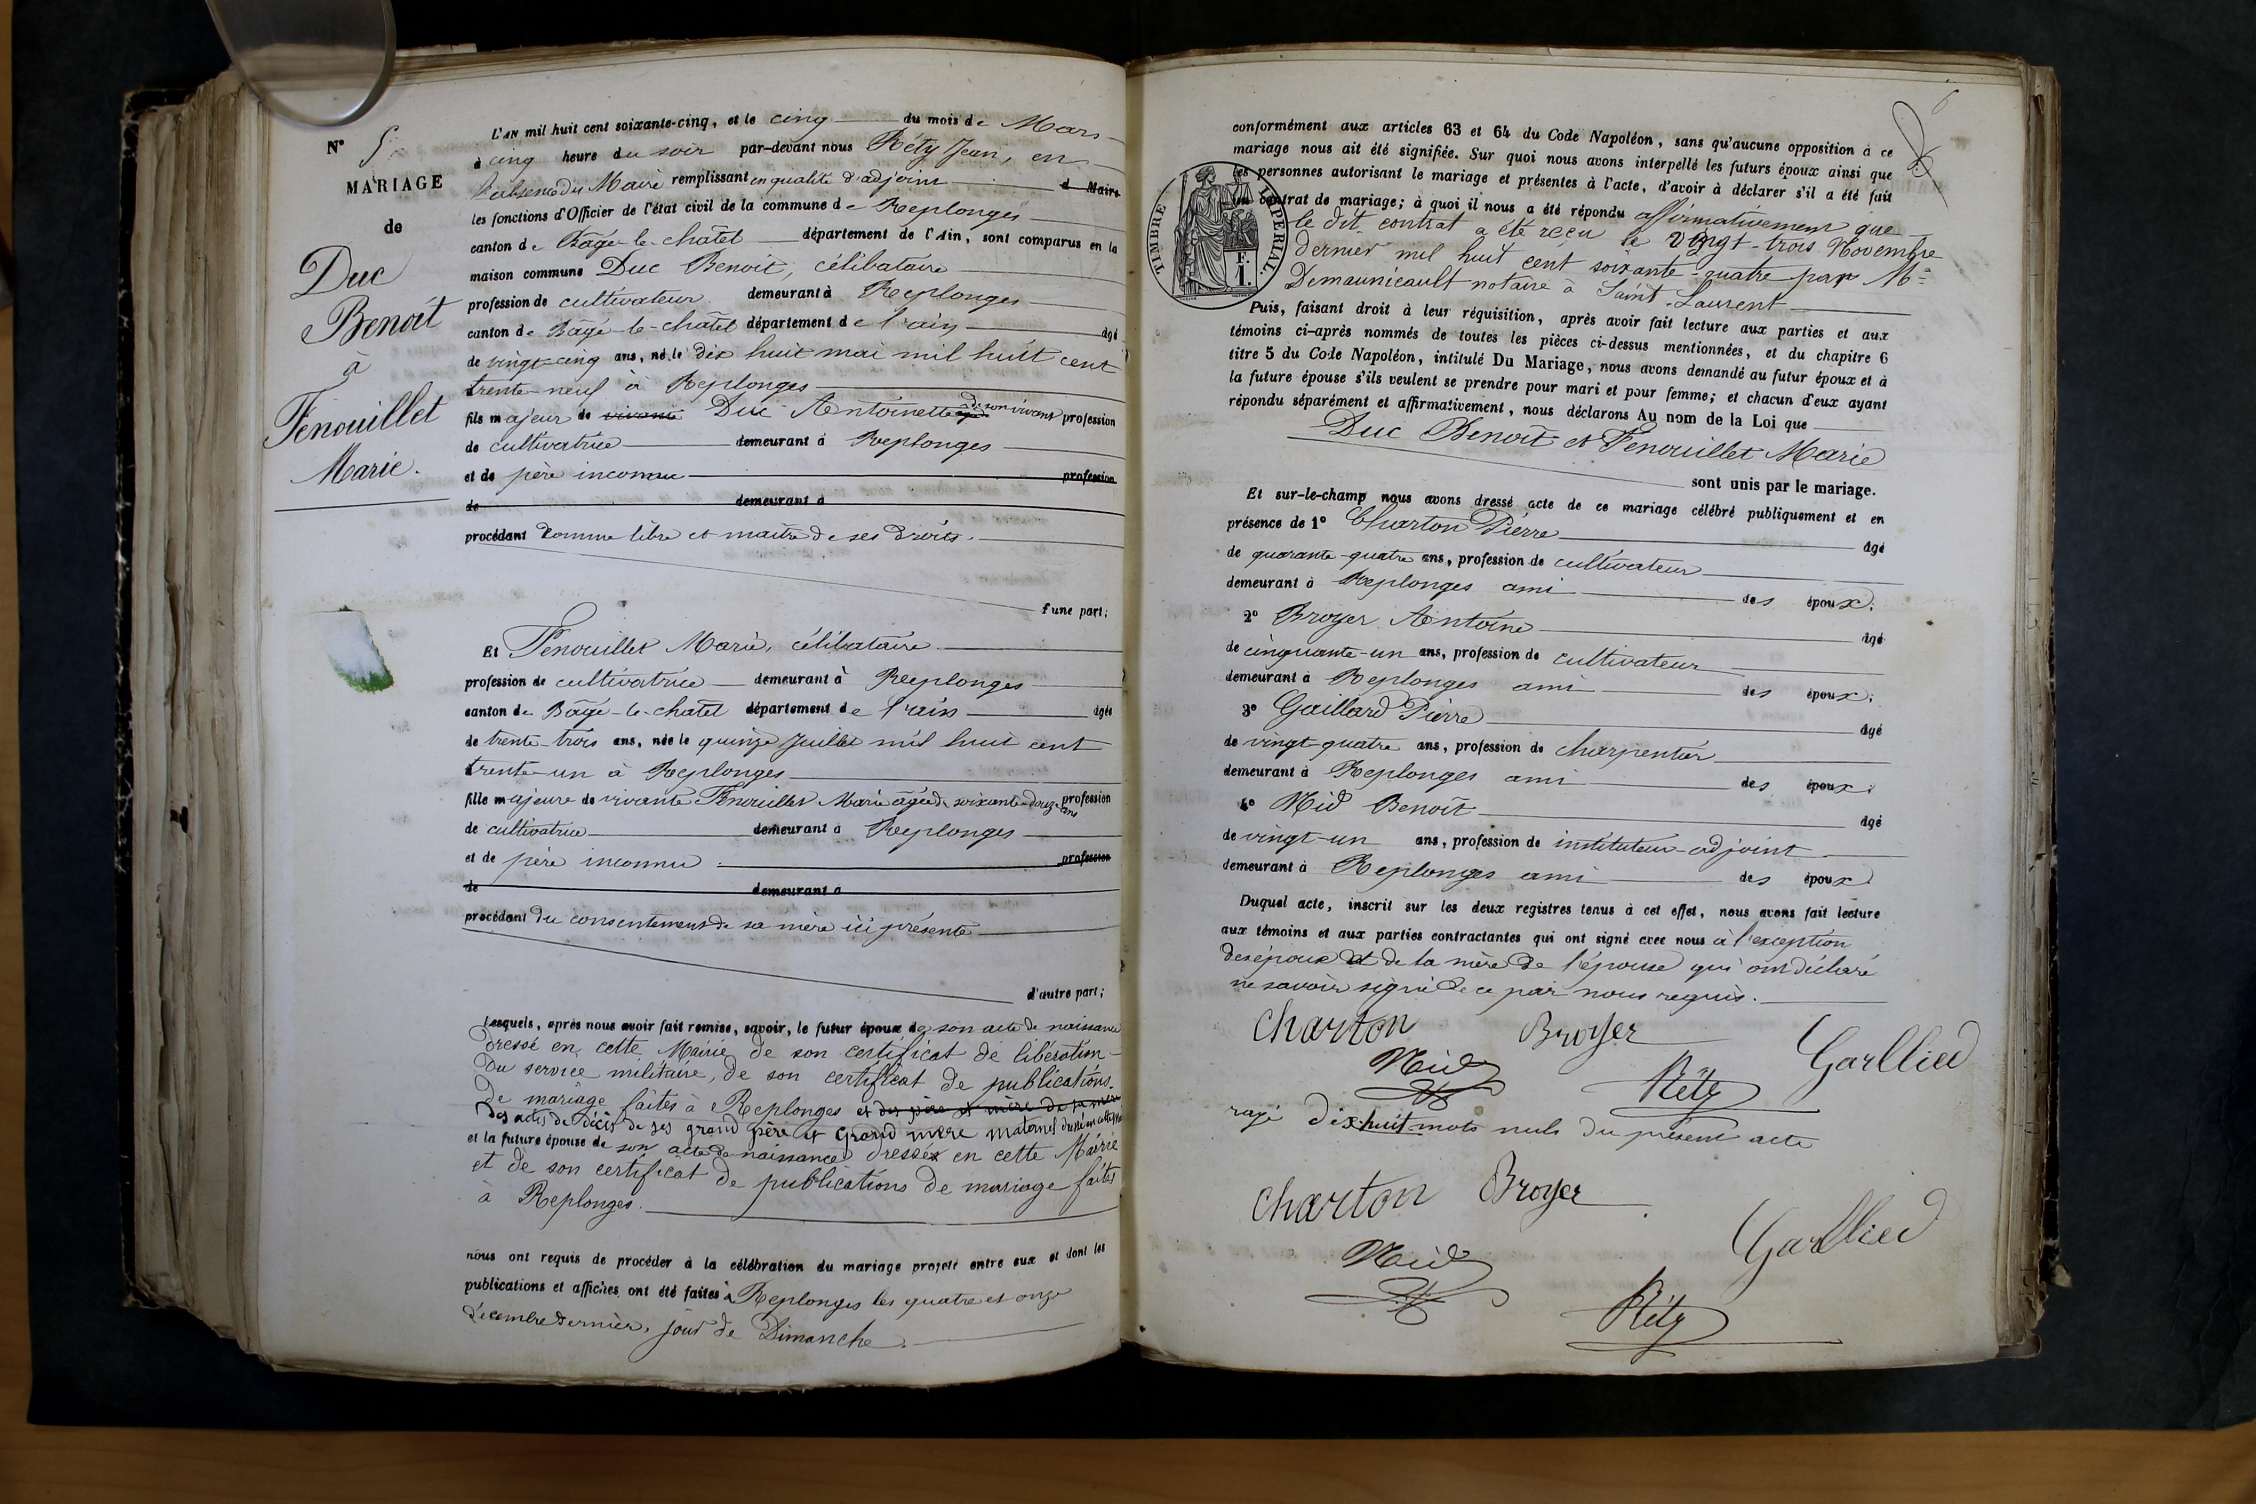 N° 5
MARIAGE
de
Duc
Benoît
à
Fenouillet
Marie.
L'AN mil huit cent soixante-cinq, et le cinq du mois de Mars
à cinq heure du soir par-devant nous Réty Jean, en
l'absence du Maire remplissant en qualité d'adjoint d Maire
les fonctions d'Officier de l'état civil de la commune de Replonges
canton de Bâgé-le-châtel département de l'Ain, sont comparus en la
maison commune Duc Benoît, célibataire
profession de cultivateur demeurant à Replonges
canton de Bâgé-le-châtel département de l'ain âgé
de vingt-cinq ans, né le dix huit mai mil huit cent
trente-neuf à Replonges
fils majeur de vivante Duc Antoinette de son vivant profession
de cultivatrice demeurant à Replonges
et de père inconnu profession
de demeurant à
procédant comme libre et maître de ses droits.
d'une part;
Et Fenouillet Marie, célibataire
profession de cultivatrice demeurant à Replonges
canton de Bâgé-le-châtel département de l'ain âgée
de trente-trois ans, née le quinze Juillet mil huit cent
trente-un à Replonges
fille majeure de vivante Fenouillet Marie âgée de soixante-douze ans profession
de cultivatrice demeurant à Replonges
et de père inconnu profession
de demeurant à
procédant du consentement de sa mère ici présente
d'autre part;
Lesquels, après nous avoir fait remise, savoir, le futur époux de son acte de naissance
dressé en cette Mairie, de son certificat de libération
du service militaire, de son certificat de publications
de mariage faites à Replonges et des père et mère de sa mère
des actes de décès de ses grand père et grand mère maternel dressé en cette
et la future épouse de son acte de naissance dressée en cette Mairie
et de son certificat de publications de mariage faites
à Replonges.
nous ont requis de procéder à la célébration du mariage projeté entre eux et dont les
publications et affiches ont été faites à Replonges les quatre et onze
décembre dernier, jour de Dimanche.
6
conformément aux articles 63 et 64 du Code Napoléon, sans qu'aucune opposition à ce
mariage nous ait été signifiée. Sur quoi nous avons interpellé les futurs époux ainsi que
les personnes autorisant le mariage et présentes à l'acte, d'avoir à déclarer s'il a été fait
un contrat de mariage; à quoi il nous a été répondu affirmativement que
le dit contrat a été reçu le vingt-trois Novembre
dernier mil huit cent soixante-quatre par Me
Demaunicault notaire à Saint-Laurent
TIMBRE IMPERIAL.
F.
1.
Puis, faisant droit à leur réquisition, après avoir fait lecture aux parties et aux
témoins ci-après nommés de toutes les pièces ci-dessus mentionnées, et du chapitre 6
titre 5 du Code Napoléon, intitulé Du Mariage, nous avons demandé au futur époux et à
la future épouse s'ils veulent se prendre pour mari et pour femme; et chacun d'eux ayant
répondu séparément et affirmativement, nous déclarons Au nom de la Loi que
Duc Benoît et Fenouillet Marie
sont unis par le mariage.
Et sur-le-champ nous avons dressé acte de ce mariage célébré publiquement et en
présence de 1° Charton Pierre âgé
de quarante-quatre ans, profession de cultivateur
demeurant à Replonges ami des époux;
2° Broyer Antoine âgé
de cinquante-un ans, profession de cultivateur
demeurant à Replonges ami des époux;
3° Gaillard Pierre âgé
de vingt-quatre ans, profession de charpentier
demeurant à Replonges ami des époux;
4° Nid Benoît âgé
de vingt-un ans, profession de instituteur-adjoint
demeurant à Replonges ami des époux
Duquel acte, inscrit sur les deux registres tenus à cet effet, nous avons fait lecture
aux témoins et aux parties contractantes qui ont signé avec nous à l'exception
des époux et de la mère de l'épouse qui ont déclaré
ne savoir signé de ce par nous requis.
Charton Broyer Garllied
Nid Réty
rayé dix-huit mots nuls du présent acte
Charton Broyer
Garllied
Nid
Réty